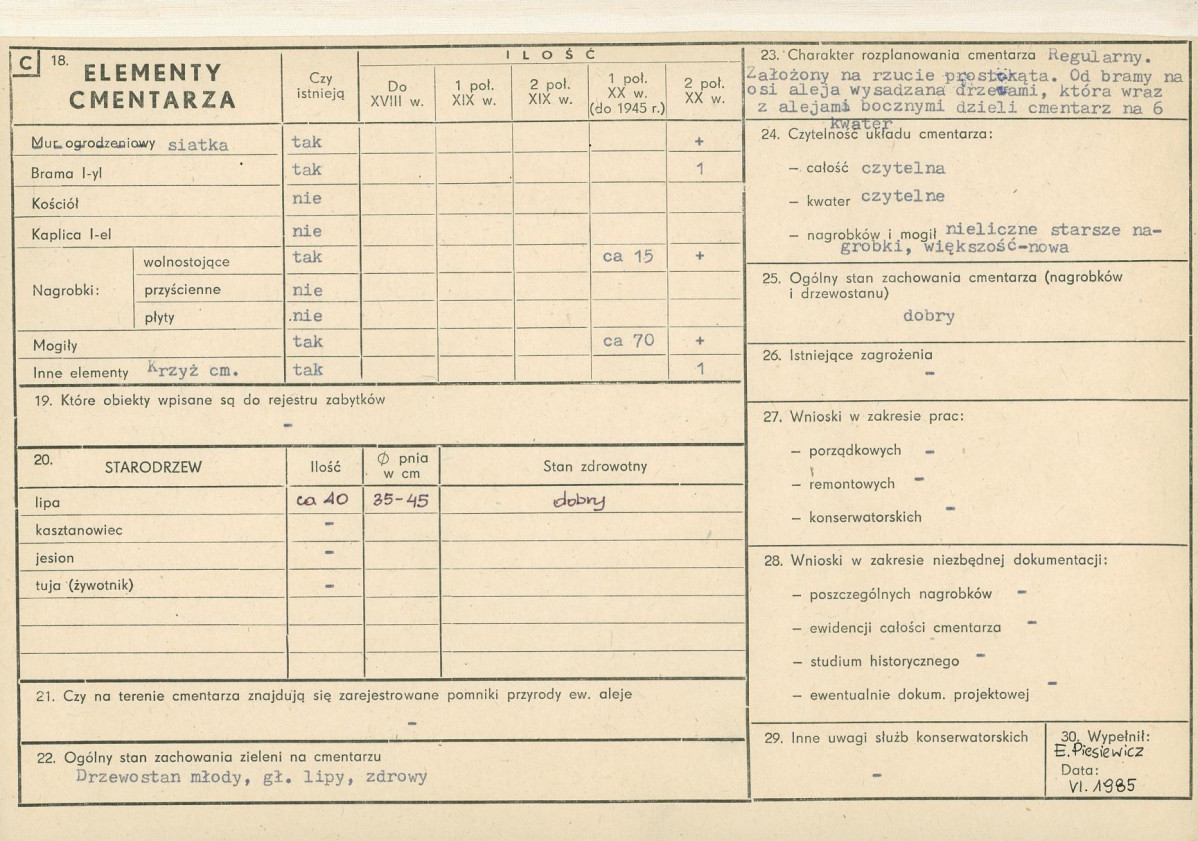 C 18. ELEMENTY CMENTARZA
Czy istnieją
ILOŚĆ
Do XVIII w.
1 poł. XIX w.
2 poł. XIX w.
1 poł. XX w. (do 1945 r.)
2 poł. XX w.
Mur ogrodzeniowy siatka tak +
Brama I-yl tak 1
Kościół nie
Kaplica I-el nie
Nagrobki: wolnostojące tak ca 15 +
przyścienne nie
płyty .nie
Mogiły tak ca 70 +
Inne elementy Krzyż cm. tak 1
19. Które obiekty wpisane są do rejestru zabytków
-
20. STARODRZEW Ilość Ø pnia w cm Stan zdrowotny
lipa ca 40 35-45 dobry
kasztanowiec -
jesion -
tuja (żywotnik) -
21. Czy na terenie cmentarza znajdują się zarejestrowane pomniki przyrody ew. aleje
-
22. Ogólny stan zachowania zieleni na cmentarzu
Drzewostan młody, gł. lipy, zdrowy
23. Charakter rozplanowania cmentarza Regularny.
Założony na rzucie prostokąta. Od bramy na
osi aleja wysadzana drzewami, która wraz
z alejami bocznymi dzieli cmentarz na 6
kwater
24. Czytelność układu cmentarza:
– całość czytelna
– kwater czytelne
– nagrobków i mogił nieliczne starsze na-
grobki, większość-nowa
25. Ogólny stan zachowania cmentarza (nagrobków
i drzewostanu)
dobry
26. Istniejące zagrożenia
-
27. Wnioski w zakresie prac:
– porządkowych -
– remontowych -
– konserwatorskich -
28. Wnioski w zakresie niezbędnej dokumentacji:
– poszczególnych nagrobków -
– ewidencji całości cmentarza -
– studium historycznego -
– ewentualnie dokum. projektowej -
29. Inne uwagi służb konserwatorskich
-
30. Wypełnił:
E. Piesiewicz
Data:
VI. 1985